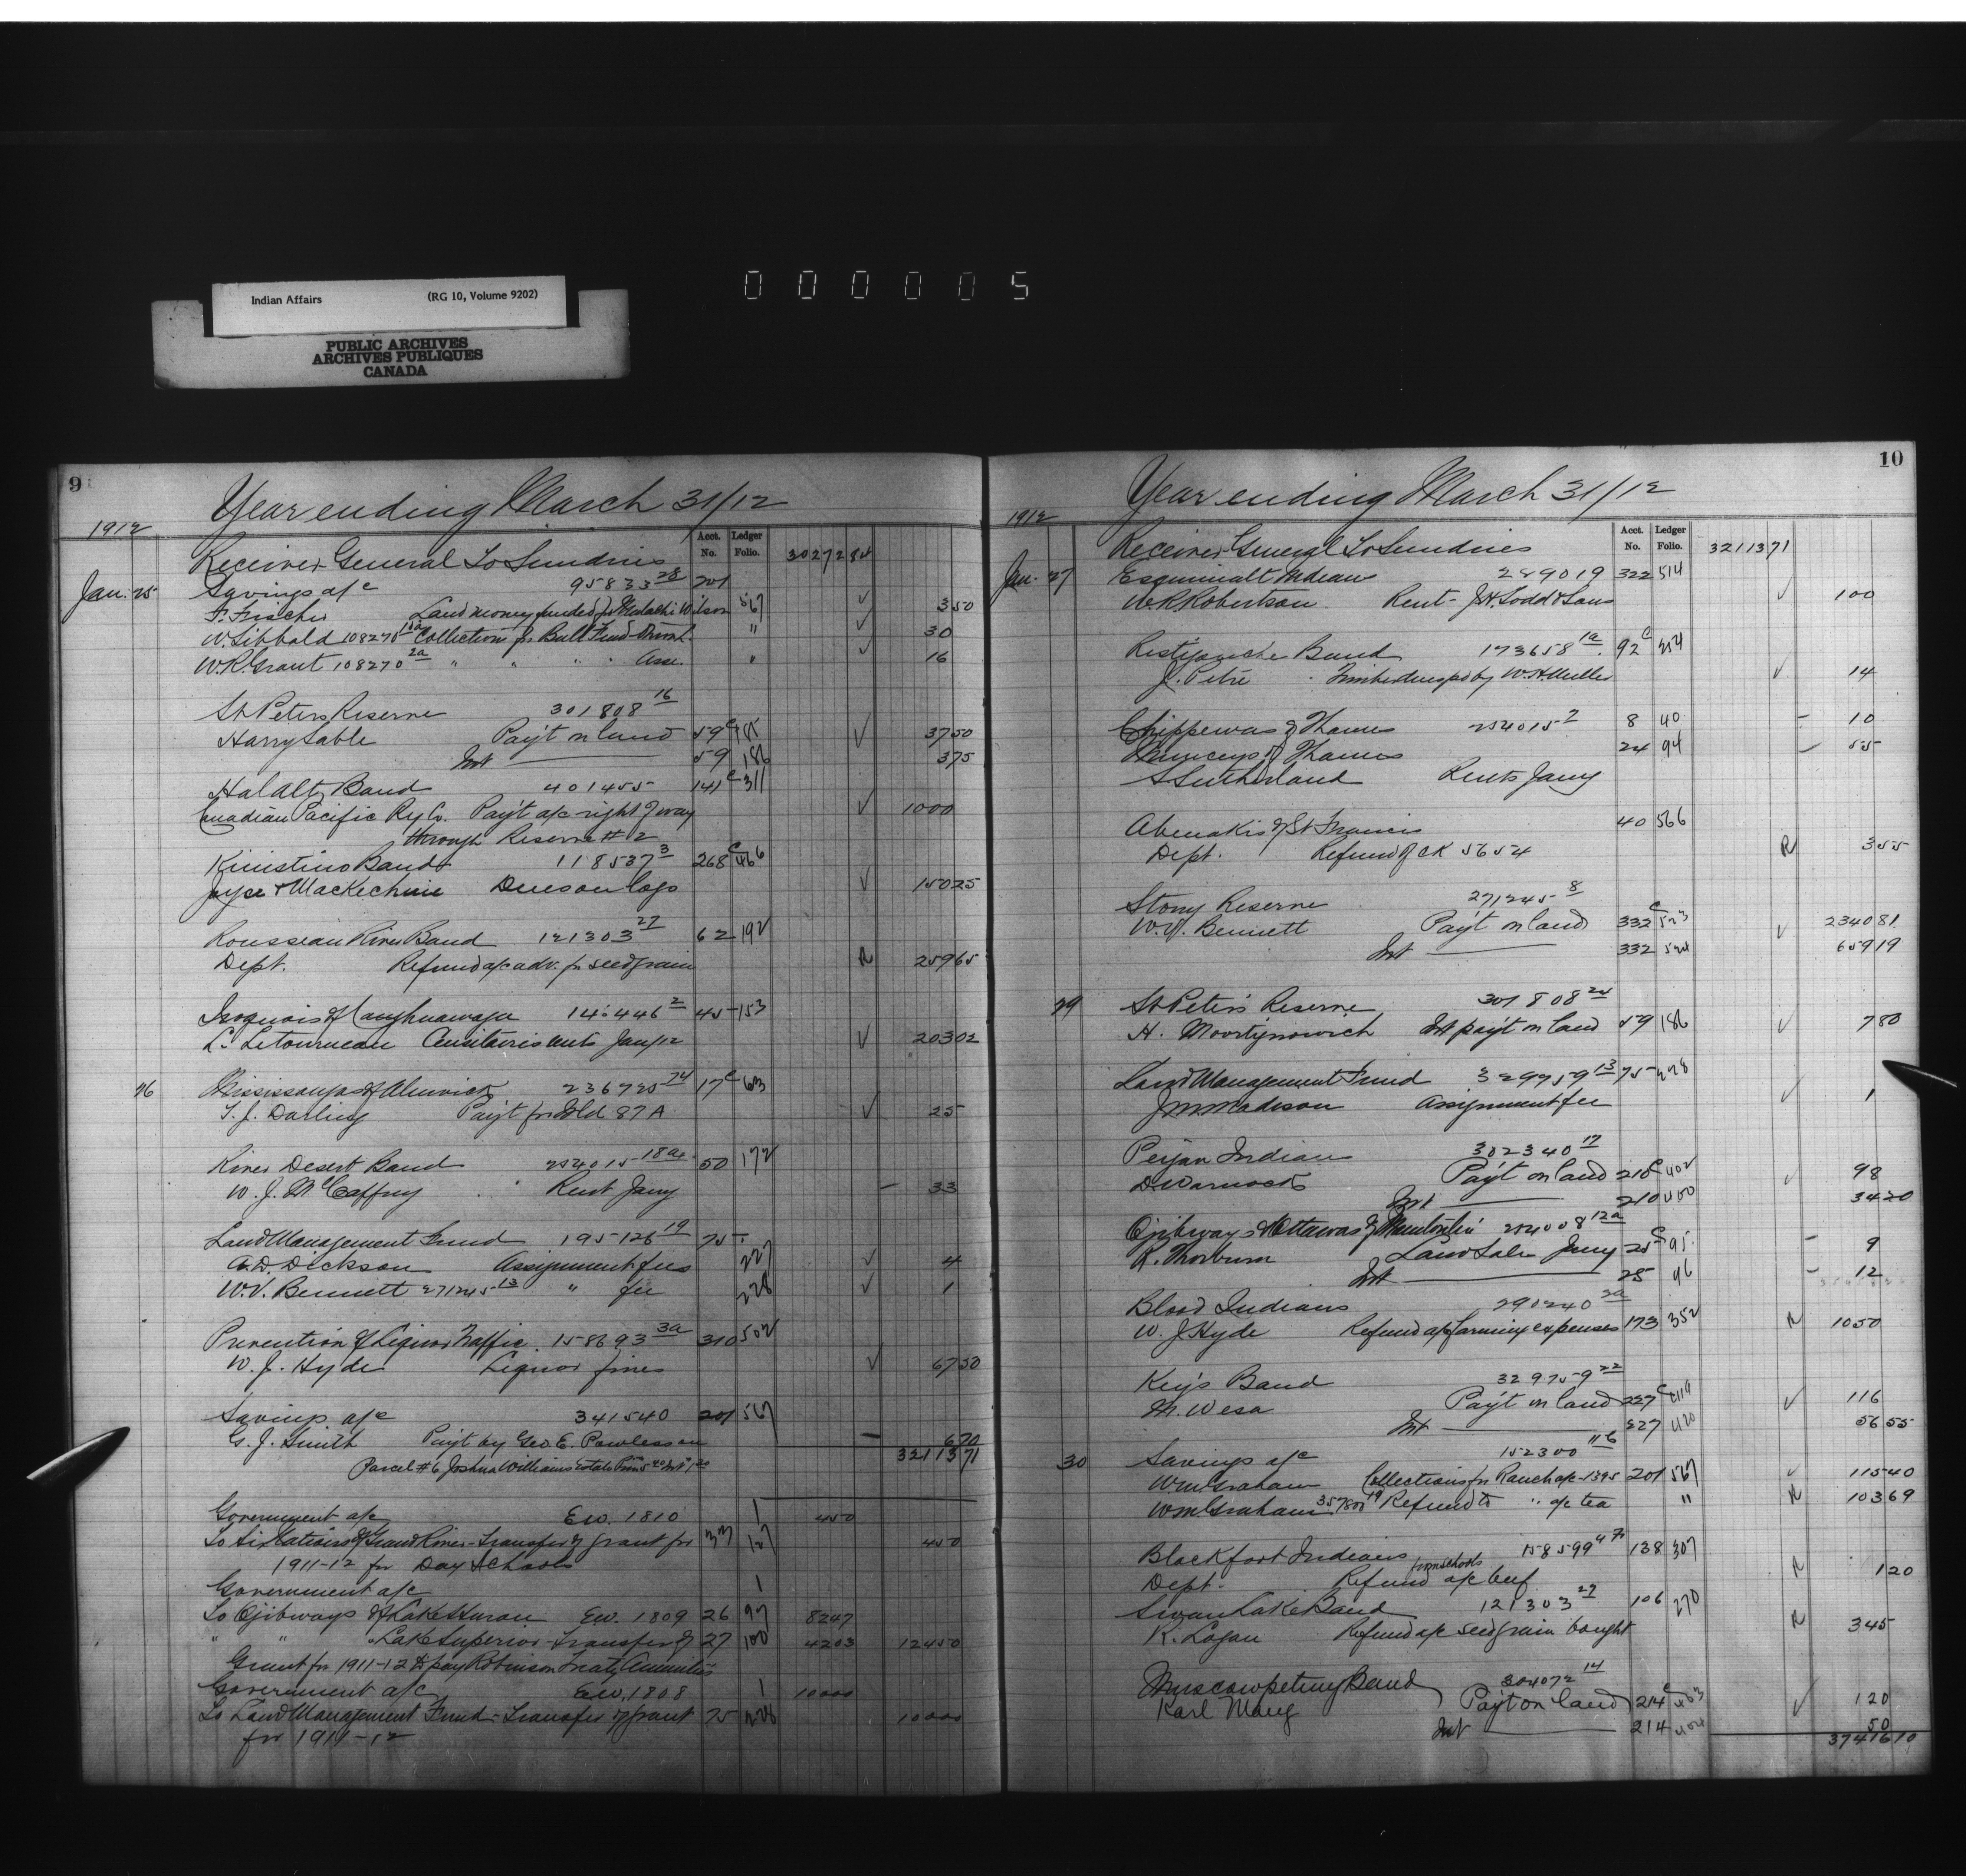 Indian Affairs (RG 10, Volume 9202)
PUBLIC ARCHIVES
ARCHIVES PUBLIQUES
CANADA
000005
9
Year ending March 31/12
1912
Acct. No. Ledger Folio.
Receiver General To Sundries 3027284
Jan. 25 Savings a/c 95833 28 201
F. Frischer Land money funded for Malachi Wilson 567 350
W. Sibbald 108270 18a Collection for Bull Fund " 30
W.R. Grant 108270 2a " " " " Asse. " 16
St Peters Reserve 301808 16
Harry Sable Pay't on land 59 c 185 3750
Int 59 186 375
Halalt Band 401455 141 c 311
Canadian Pacific Ry Co. Pay't a/c right of way 1000
through Reserve # 2
Kinistino Band 118537 3 268 c 466
Joyce & MacKechnie Dues on logs 15025
Rousseau River Band 121303 27 62 192
Dept. Refund a/c adv. for seed grain R 25965
Iroquois of Caughnawaga 14 446 2 45 153
L. Letourneau Jany/12 20302
26 Mississaugas of Alnwick 236725 74 17 c 63
T. J. Darling Pay't for Isld 87 A 25
River Desert Band 254015 18a 50 172
W. J. McCaffrey Rent Jany 33
Land Management Fund 195126 19 75
A.D. Dickson Assignment fees 227 4
W.V. Bennett 271245 13 " fee 228 1
Prevention of Liquor Traffic 158693 3a 310 502
W. J. Hyde Liquor fines 6750
Savings a/c 341540 201 567
G. J. Smith Pay't by Geo. E. Powless on 670
Parcel #6 Joshua Williams Estate Prin 5 40 Int 1 30 3211371
Government a/c Ew. 1810 1 450
To Six Nations of Grand River - Transfer of grant for 33 127 450
1911-12 for Day Schools
Government a/c 1
To Ojibways of Lake Huron Ew. 1809 26 97 8247
" " " Lake Superior - Transfer of 27 100 4203 12450
Grant for 1911-12 to pay Robinson Treaty Annuities
Government a/c Ew. 1808 1 10000
To Land Management Fund - Transfer of grant 75 228 10000
for 1911-12
10
Year ending March 31/12
1912
Acct. No. Ledger Folio.
Receiver General To Sundries 3211371
Jan. 27 Esquimalt Indians 289019 322 514
W.R. Robertson Rent - J.H. Todd & Sons 100
Restigouche Band 173658 1a 92 c 254
J. Pitre Timber dues pd by W.H. Miller 14
Chippewas of Thames 254015 7 8 40 10
Munceys of Thames 24 94 55
S Sutherland Rents Jany
Abenakis of St Francis 40 566
Dept. Refund of CK 5654 R 355
Stony Reserve 271245 8
W.V. Bennett Pay't on land 332 c 523 234081
Int 332 524 65919
29 St Peter's Reserve 301808 24
H. Moortynowich Int pay't on land 59 186 780
Land Management Fund 329759 13 75 228
J M Madison Assignment fee 1
Peigan Indians 302340 17
D. Warnock Pay't on land 210 c 402 98
Int 210 400 3420
Ojibways & Ottawas of Manitoulin 254008 12a
R. Thorburn Land Sales Jany 25 c 95 9
Int 25 96 12
Blood Indians 290240 2a
W. J. Hyde Refund a/c farming expenses 173 352 R 1050
Key's Band 329759 22
M. Wesa Pay't on land 227 c 419 116
Int 227 420 5655
30 Savings a/c 152300 116
Wm Graham Collections for Ranch a/c 1395 201 567 11540
Wm Graham 357800 19 Refund to " a/c tea " R 10369
Blackfoot Indians 158599 47 138 307
Dept. Refund from schools a/c beef R 120
Swan Lake Band 121303 29 106 270
R. Logan Refund a/c seed grain bought R 345
Muscowpetung Band 304072 14
Karl Mang Pay't on land 214 c 403 120
Int 214 404 50
3741610